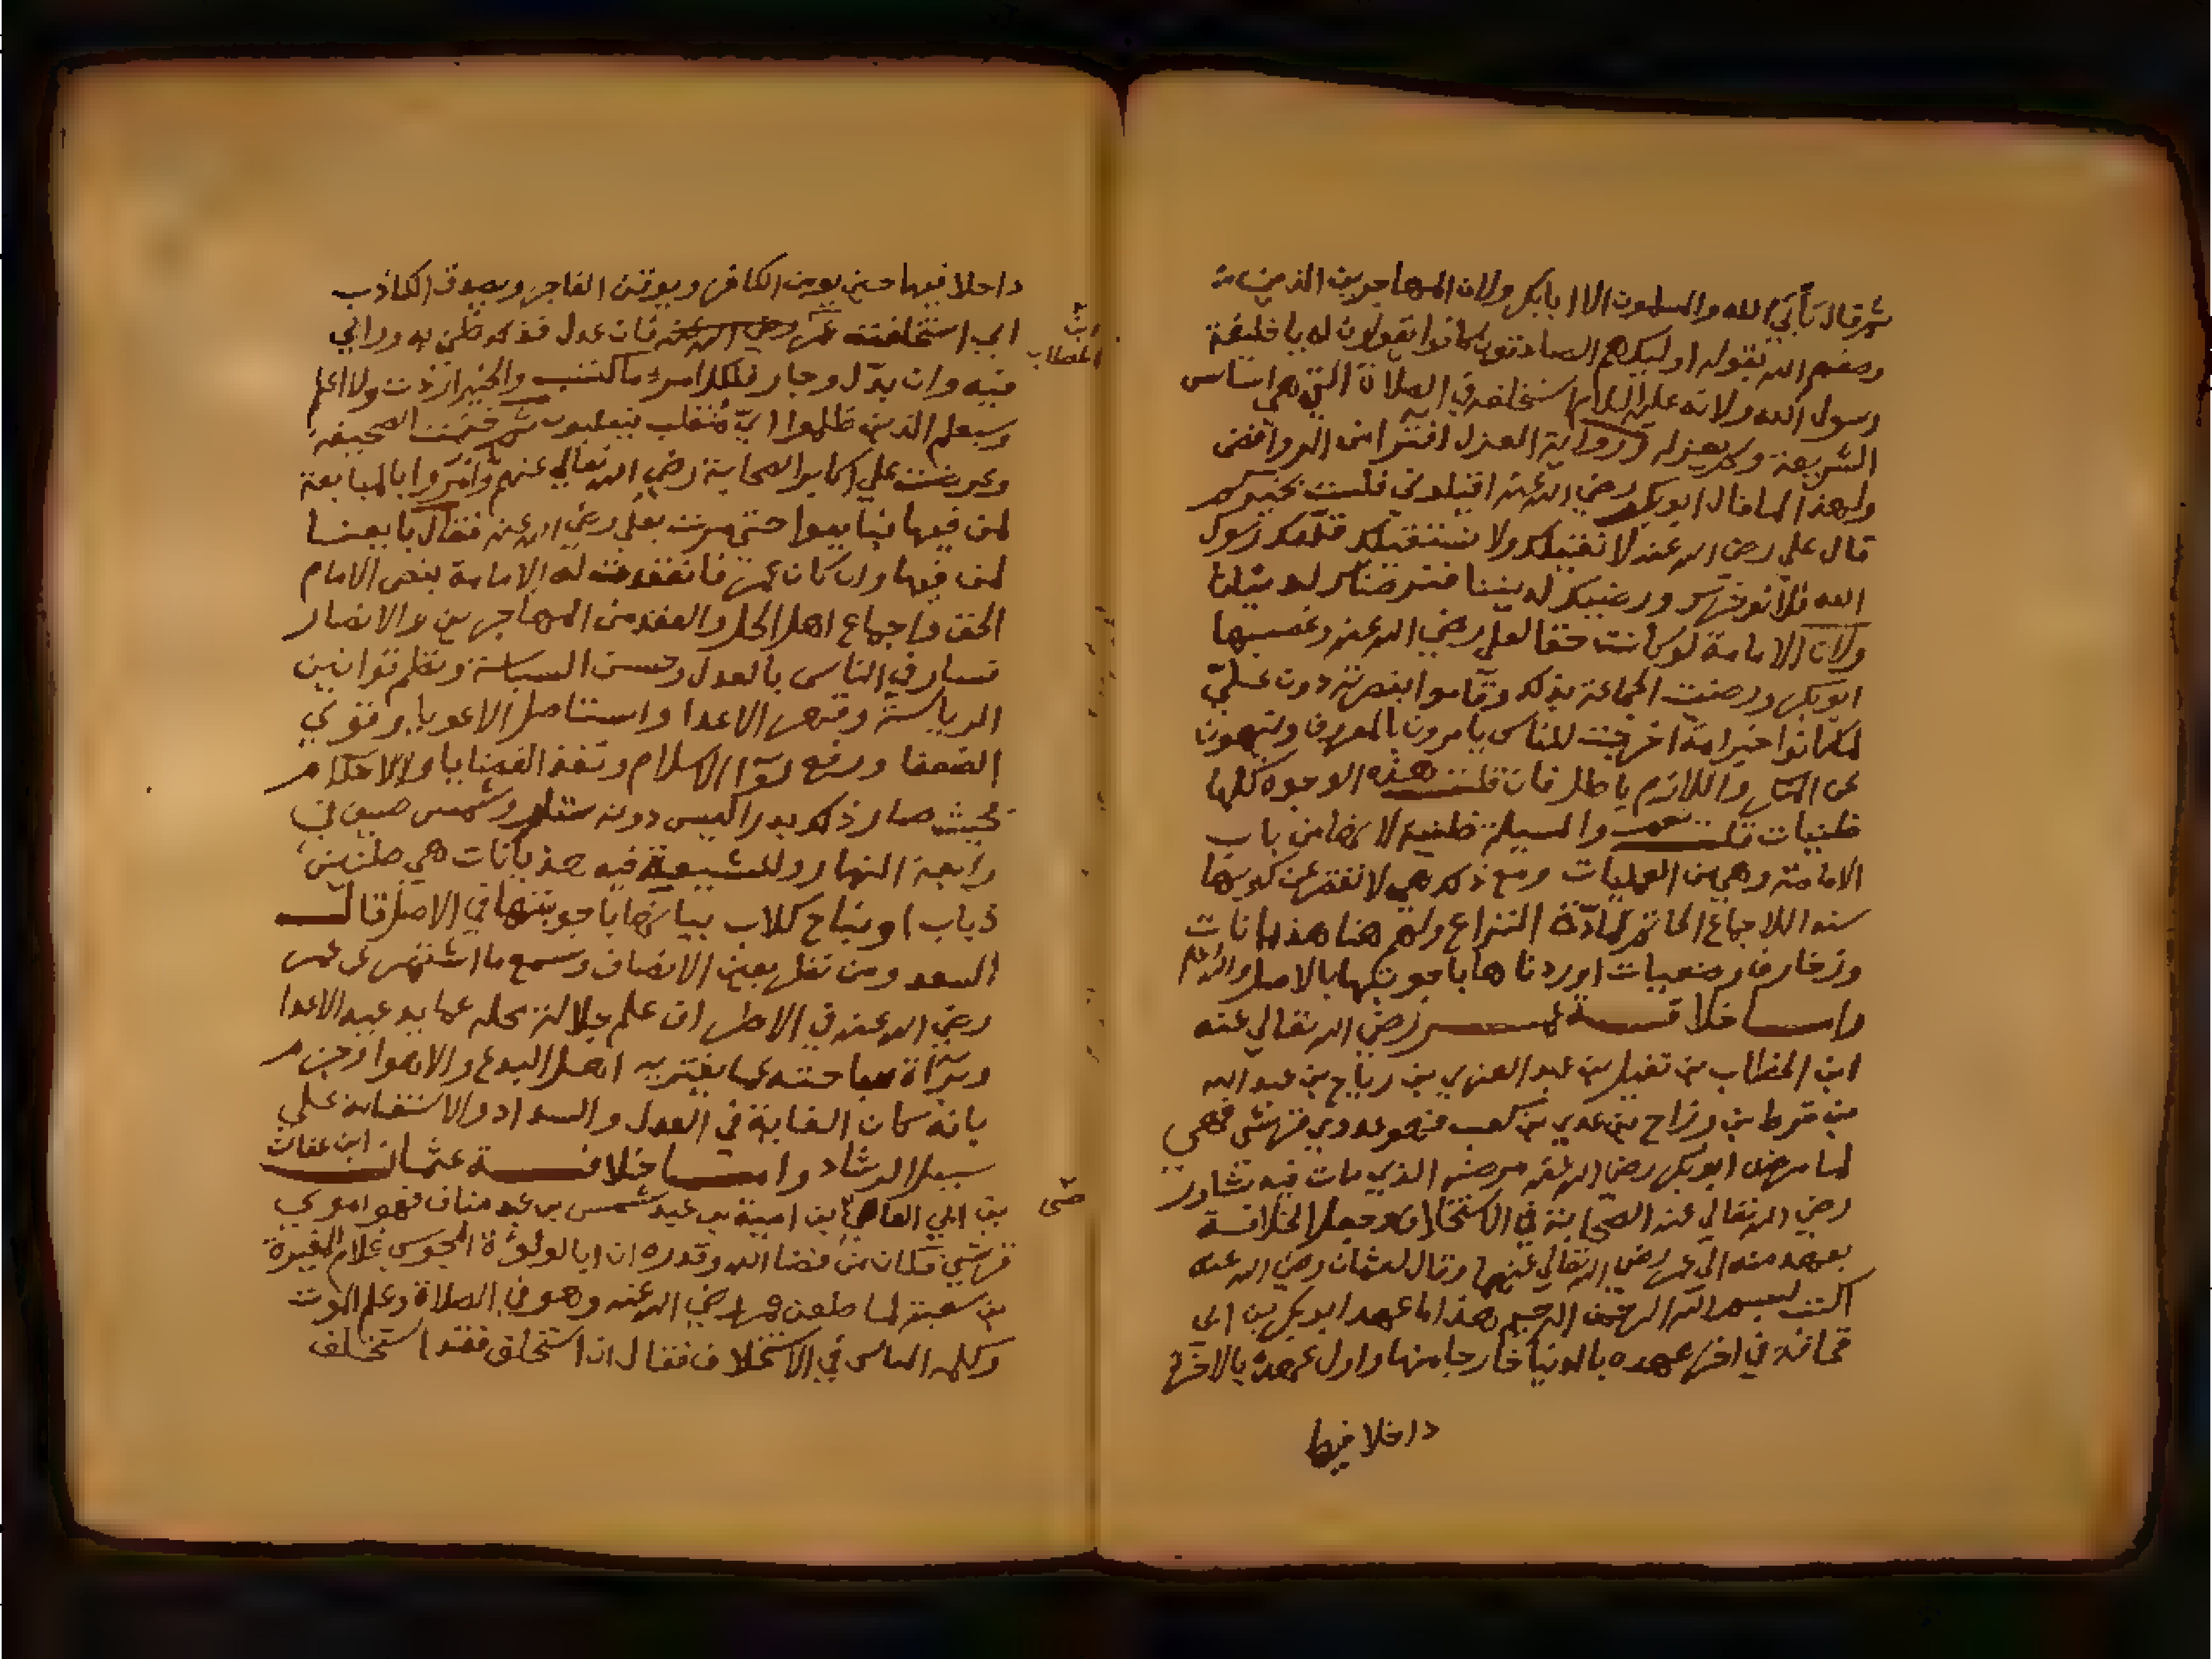 ثم قال يأبى الله والمسلمون الا ابابكر ولان المهاجرين الذين
وصفهم الله بقوله اوليك هم الصادقون كانوا يقولون له يا خليفة
رسول الله ولانه عليه السلام استخلفه في الصلاة التي هي اساس
الشريعة ولم يعزله ورواية العزل افترا من الروافض
ولهذا لما قال ابوبكر رضي الله عنه اقيلوني فلست بخيركم
قال علي رضي الله عنه لا نقيلك ولا نستقيلك قدمك رسول
الله فلا نوخرك ورضيك لديننا فترضاك لدنيانا
ولان الامامة لو كانت حقا لعلي رضي الله عنه وغصبها
ابوبكر ورضيت الجماعة بذلك وقاموا بنصرته دون علي
لما كانوا خير امة اخرجت للناس يامرون بالمعروف وينهون
عن المنكر واللازم باطل فان قلت هذه الوجوه كلها
ظنيات قلت نعم والمسيلة ظنية لانها من باب
الامامة وهي من العمليات ومع ذلك هي لا تقصر عن كونها
سندا للاجماع الحاسم لمادة النزاع ولهم هنا هذيانات
وزخارف وصعبيات اوردناها باجوبتها بالاصل والله اعلم
واما خلافة عمر رضي الله تعالى عنه
ابن الخطاب بن نفيل بن عبد العزي بن رياح بن عبد الله
بن قرط بن رزاح بن عدي بن كعب فهو عدوي قرشي فهي
لما مرض ابوبكر رضي الله عنه مرضه الذي مات فيه تشاور
رضي الله تعالي عنه الصحابة في الاستخلاف وجعل الخلافة
بعهد منه الي عمر رضي الله تعالي عنهما وقال لعثمان رضي الله عنه
اكتب بسم الله الرحمن الرحيم هذا ما عهد ابوبكر بن ابي
قحافة في اخر عهده بالدنيا خارجا منها واول عهده بالاخرة
داخلا فيها
داخلا فيها حين يومن الكافر ويوقن الفاجر ويصدق الكاذب
اني استخلفت عمر رضي الله عنه فان عدل فذاك ظني به ورائي
ابن
الخطاب
فيه وان بدل وجار فلكل امرء ما اكتسب والخير اردت ولا اعلم
وسيعلم الذين ظلموا اي منقلب ينقلبون ثم ختمت الصحيفة
وعرضت علي اكابر الصحابة رضي الله تعالي عنهم وامروا بالمبايعة
لمن فيها فبايعوا حتي مرت بعلي رضي الله عنه فقال بايعنا
لمن فيها وان كان عمر فانعقدت له الامامة بنص الامام
الحق واجماع اهل الحل والعقد من المهاجرين والانصار
فسار في الناس بالعدل وحسن السياسة ونظم قوانين
الرياسة وقهر الاعدا واستاصل الاعويا وقوي
الضعفا ورفع لوآ الاسلام ونفذ القضايا والاحكام
بحيث صار ذلك بدرا ليس دونه ستار وشمس صيف في
رابعة النهار وللشيعة فيه هذيانات هي طنين
ذباب او نباح كلاب بيانها باجوبتها في الاصل قال
السعد ومن نظر بعين الانصاف وسمع ما اشتهر عن عمر
رضي الله عنه في الاطراف علم جلالة محله عما يدعيه الاعدا
وبرآة ساحته عما يفتريه اهل البدع والاهوا وجزم
بانه كان الغاية في العدل والسداد والاستقامة علي
سبيل الرشاد واما خلافة عثمان ابن عفان
بن ابي العاص بن امية بن عبد شمس بن عبد مناف فهو اموي
قرشي فكان من قضا الله وقدره ان ابا لولؤة المجوسي غلام المغيرة
بن شعبة لما طعن عمر رضي الله عنه وهو في الصلاة وعلم الموت
وكلمه الناس في الاستخلاف فقال ان استخلف فقد استخلف